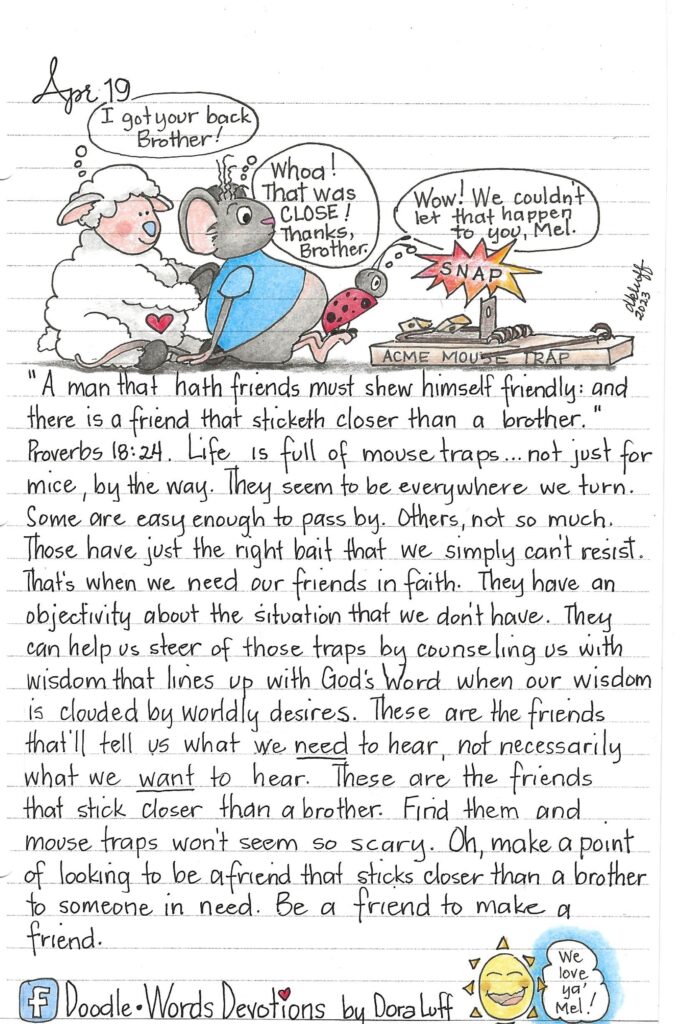 Apr 19
I got your back
Brother!
Whoa!
That was
CLOSE!
Thanks,
Brother.
Wow! We couldn't
let that happen
to you, Mel.
SNAP
2023
ACME MOUSE TRAP
"A man that hath friends must shew himself friendly: and
there is a friend that sticketh closer than a brother."
Proverbs 18:24. Life is full of mouse traps... not just for
mice, by the way. They seem to be everywhere we turn.
Some are easy enough to pass by. Others, not so much.
Those have just the right bait that we simply can't resist.
That's when we need our friends in faith. They have an
objectivity about the situation that we don't have. They
can help us steer of those traps by counseling us with
wisdom that lines up with God's Word when our wisdom
is clouded by worldly desires. These are the friends
that'll tell us what we need to hear, not necessarily
what we want to hear. These are the friends
that stick closer than a brother. Find them and
mouse traps won't seem so scary. Oh, make a point
of looking to be a friend that sticks closer than a brother
to someone in need. Be a friend to make a
friend.
f Doodle•Words Devotions by Dora Luff
We
love
ya'
Mel!